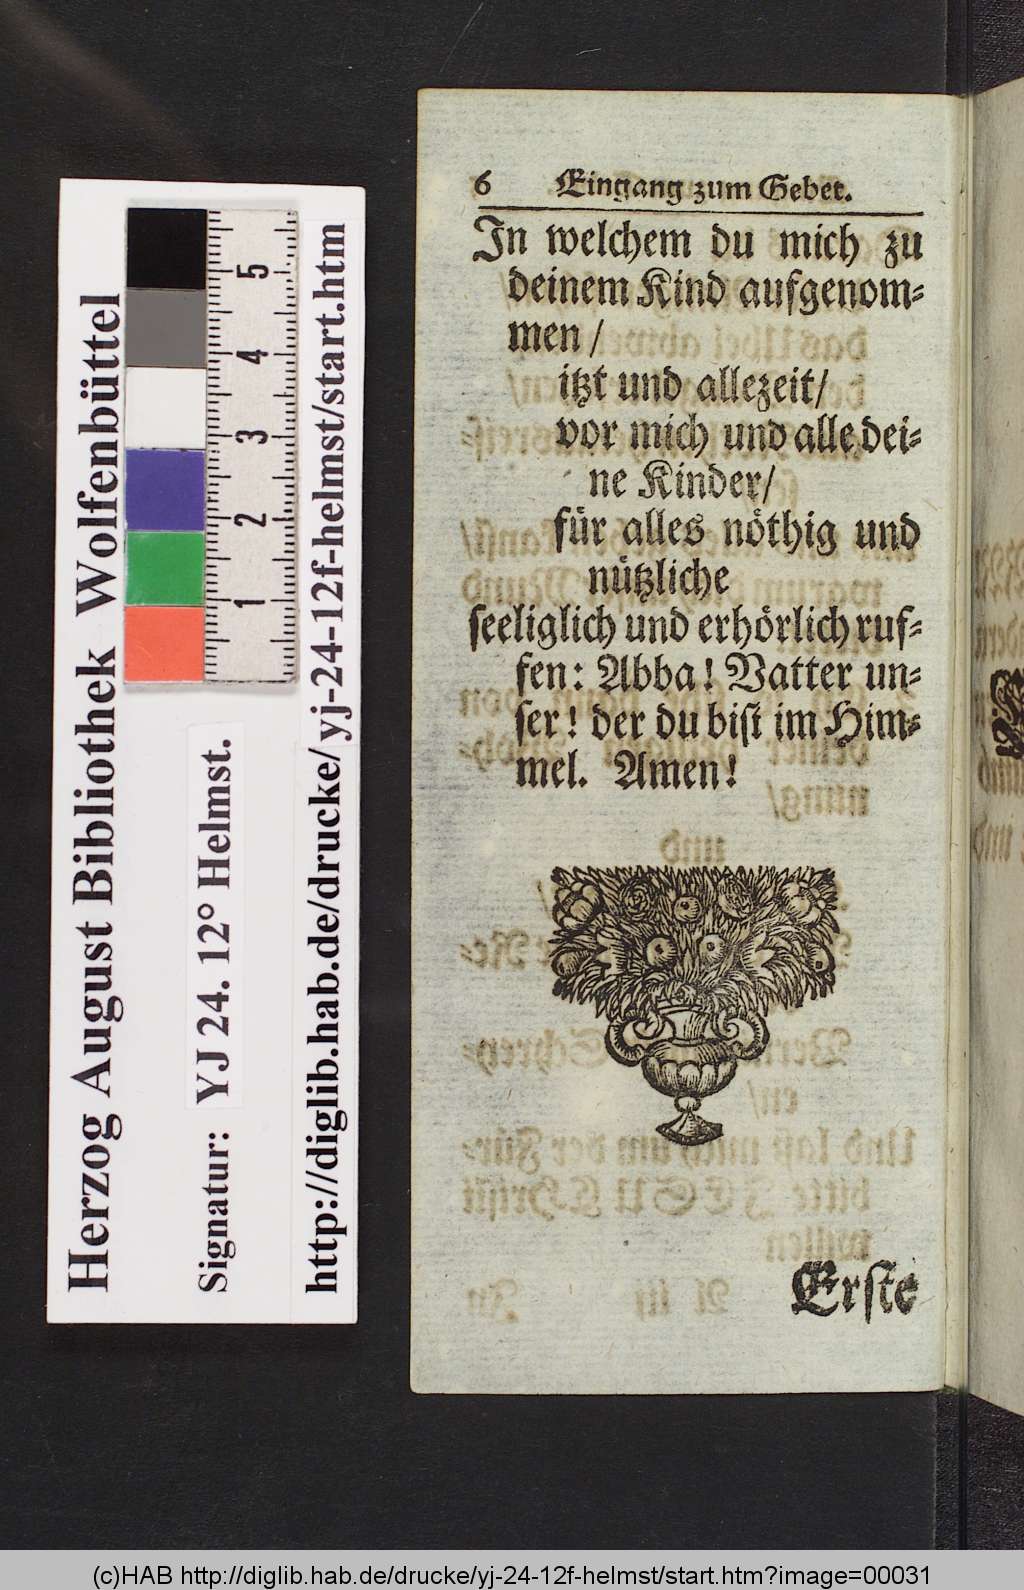 6 Eingang zum Gebet.
In welchem du mich zu
deinem Kind aufgenom⸗
men /
itzt und allezeit/
vor mich und alle dei⸗
ne Kinder/
für alles nöthig und
nützliche
seeliglich und erhörlich ruf⸗
fen: Abba! Vatter un⸗
ser! der du bist im Him⸗
mel. Amen!
Erste
Herzog August Bibliothek Wolfenbüttel
Signatur: YJ 24. 12° Helmst.
http://diglib.hab.de/drucke/yj-24-12f-helmst/start.htm
5
4
3
2
1
(c)HAB http://diglib.hab.de/drucke/yj-24-12f-helmst/start.htm?image=00031